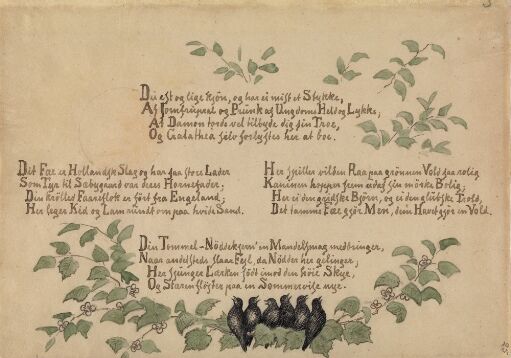 Du est og lige skjön, og har ei mist et Stykke,
Af Jomfrupral og Prunk af Ungdoms Held og Lykke;
At Damon torde vel tilbyde dig sin Troe,
Og Galathea selv forlystes her at boe.
Det Fæe er Hollandsk Slag og har saa store Lader
Som Tyr til Sæbygaard var deres Hornefader;
Din krölled Faareflok er fört fra Engeland;
Her leger Kid og Lam rundt om paa hvide Sand.
Her spiller vilden Raa paa grönnen Vold saa rolig
Kaninen hopper frem udaf sin mörke Bolig;
Her ei den gridske Björn, og ei den glubske Trold,
Det tamme Fæe gjör Meen, dem Havet gjör in Vold.
Din Tommel-Nöddekjern' en Mandelsmag medbringer,
Naar andetsteds slaar Fejl, da Nödder her gelinger;
Her sjunger Lærken södt imod den höie Skye,
Og Stæren flöjter paa en Sommervise nye.